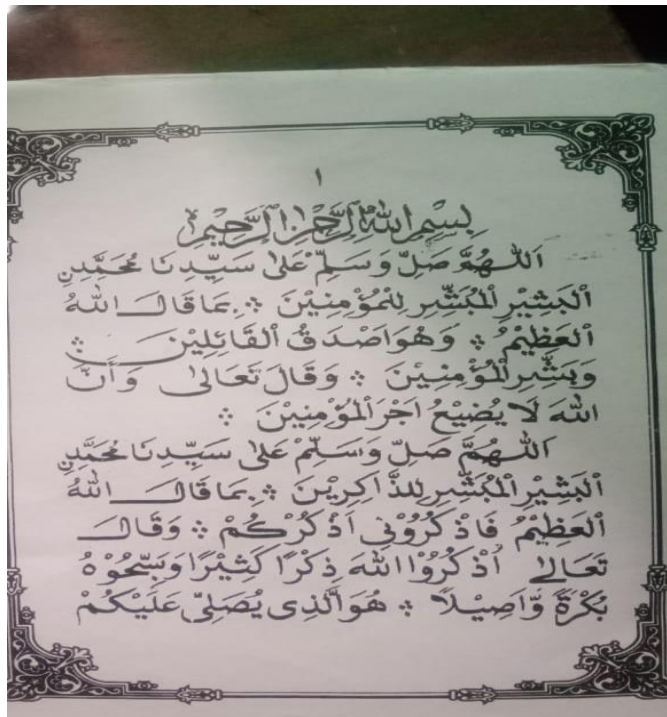 ١
بِسْمِ اللهِ الرَّحْمٰنِ الرَّحِيْمِ
اَللّٰهُمَّ صَلِّ وَسَلِّمْ عَلٰى سَيِّدِنَا مُحَمَّدِنِ
الْبَشِيْرِ الْمُبَشِّرِ لِلْمُؤْمِنِيْنَ ۞ بِمَا قَالَ اللهُ
الْعَظِيْمُ ۞ وَهُوَ اَصْدَقُ الْقَائِلِيْنَ ۞
وَبَشِّرِ الْمُؤْمِنِيْنَ ۞ وَقَالَ تَعَالٰى وَأَنَّ
اللهَ لَا يُضِيْعُ اَجْرَ الْمُؤْمِنِيْنَ ۞
اَللّٰهُمَّ صَلِّ وَسَلِّمْ عَلٰى سَيِّدِنَا مُحَمَّدِنِ
الْبَشِيْرِ الْمُبَشِّرِ لِلذَّاكِرِيْنَ ۞ بِمَا قَالَ اللهُ
الْعَظِيْمُ فَاذْكُرُوْنِي اَذْكُرْكُمْ ۞ وَقَالَ
تَعَالٰى اُذْكُرُوا اللهَ ذِكْرًا كَثِيْرًا وَسَبِّحُوْهُ
بُكْرَةً وَّاَصِيْلًا ۞ هُوَ الَّذِى يُصَلِّيْ عَلَيْكُمْ